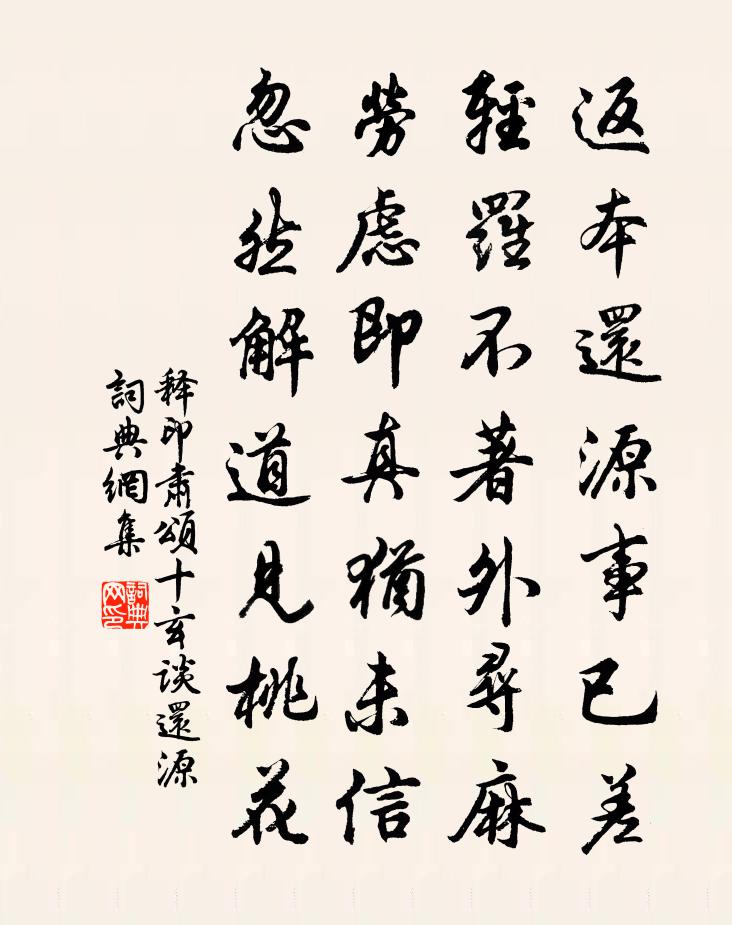 返本還源事已差
輕羅不著外尋麻
勞慮即真猶未信
忽然解道見桃花
释印肅頌十玄談還源
詞典網集
詞典網印